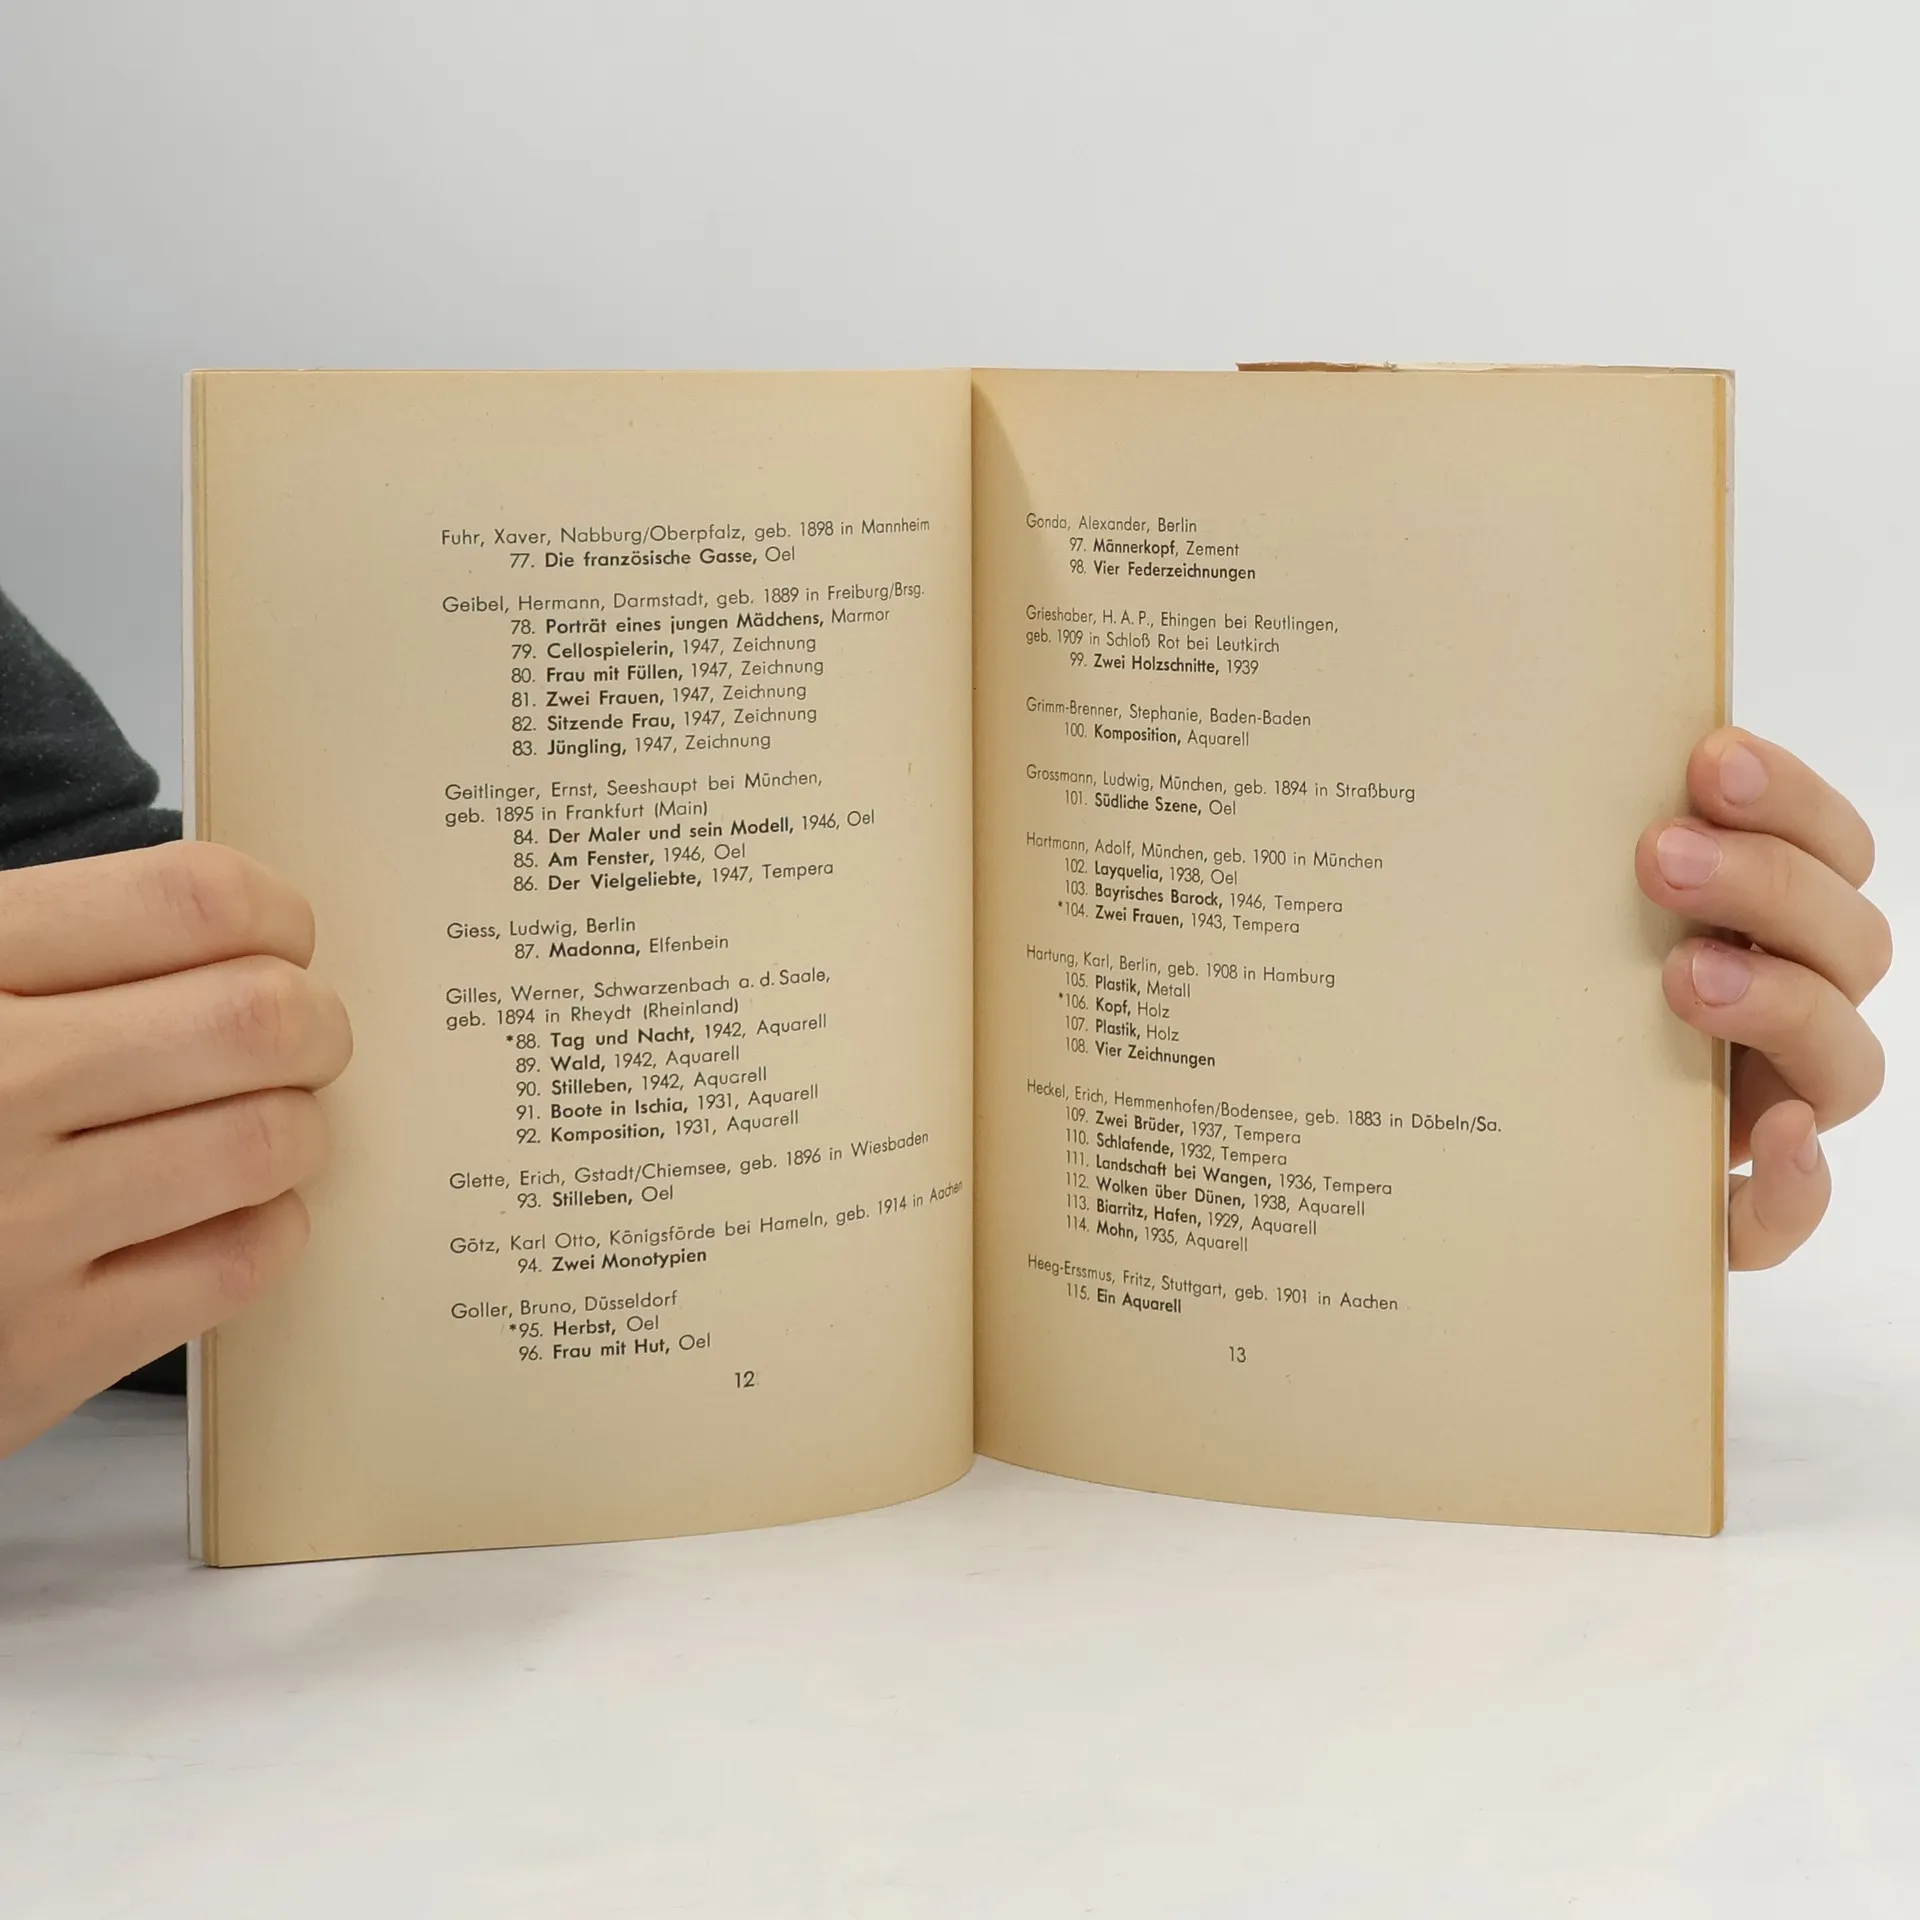 Fuhr, Xaver, Nabburg/Oberpfalz, geb. 1898 in Mannheim
77. Die französische Gasse, Oel
Geibel, Hermann, Darmstadt, geb. 1889 in Freiburg/Brsg.
78. Porträt eines jungen Mädchens, Marmor
79. Cellospielerin, 1947, Zeichnung
80. Frau mit Füllen, 1947, Zeichnung
81. Zwei Frauen, 1947, Zeichnung
82. Sitzende Frau, 1947, Zeichnung
83. Jüngling, 1947, Zeichnung
Geitlinger, Ernst, Seeshaupt bei München,
geb. 1895 in Frankfurt (Main)
84. Der Maler und sein Modell, 1946, Oel
85. Am Fenster, 1946, Oel
86. Der Vielgeliebte, 1947, Tempera
Giess, Ludwig, Berlin
87. Madonna, Elfenbein
Gilles, Werner, Schwarzenbach a. d. Saale,
geb. 1894 in Rheydt (Rheinland)
*88. Tag und Nacht, 1942, Aquarell
89. Wald, 1942, Aquarell
90. Stilleben, 1942, Aquarell
91. Boote in Ischia, 1931, Aquarell
92. Komposition, 1931, Aquarell
Glette, Erich, Gstadt/Chiemsee, geb. 1896 in Wiesbaden
93. Stilleben, Oel
Götz, Karl Otto, Königsförde bei Hameln, geb. 1914 in Aachen
94. Zwei Monotypien
Goller, Bruno, Düsseldorf
*95. Herbst, Oel
96. Frau mit Hut, Oel
12
Gonda, Alexander, Berlin
97. Männerkopf, Zement
98. Vier Federzeichnungen
Grieshaber, H. A. P., Ehingen bei Reutlingen,
geb. 1909 in Schloß Rot bei Leutkirch
99. Zwei Holzschnitte, 1939
Grimm-Brenner, Stephanie, Baden-Baden
100. Komposition, Aquarell
Grossmann, Ludwig, München, geb. 1894 in Straßburg
101. Südliche Szene, Oel
Hartmann, Adolf, München, geb. 1900 in München
102. Layquelia, 1938, Oel
103. Bayrisches Barock, 1946, Tempera
*104. Zwei Frauen, 1943, Tempera
Hartung, Karl, Berlin, geb. 1908 in Hamburg
105. Plastik, Metall
*106. Kopf, Holz
107. Plastik, Holz
108. Vier Zeichnungen
Heckel, Erich, Hemmenhofen/Bodensee, geb. 1883 in Döbeln/Sa.
109. Zwei Brüder, 1937, Tempera
110. Schlafende, 1932, Tempera
111. Landschaft bei Wangen, 1936, Tempera
112. Wolken über Dünen, 1938, Aquarell
113. Biarritz, Hafen, 1929, Aquarell
114. Mohn, 1935, Aquarell
Heeg-Erssmus, Fritz, Stuttgart, geb. 1901 in Aachen
115. Ein Aquarell
13